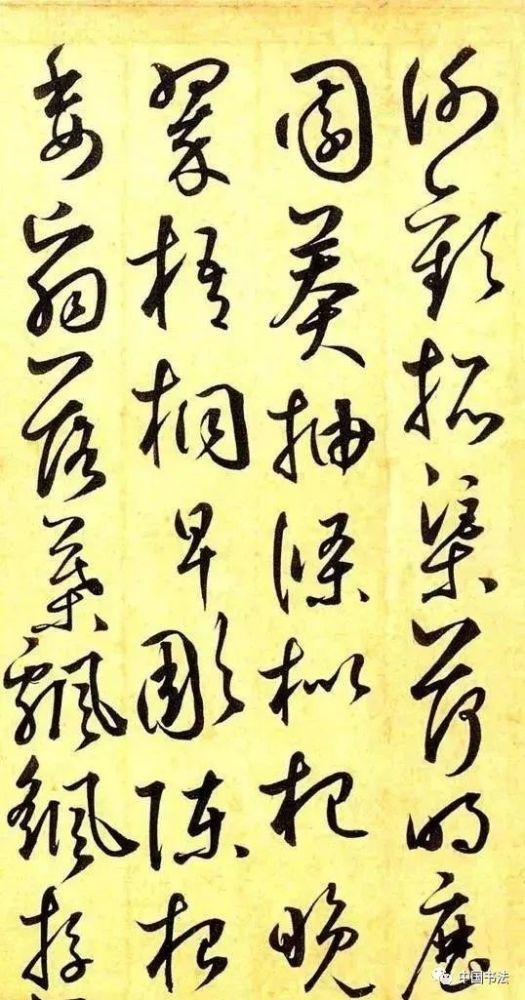 謝歡招渠荷的歷
園莽抽條枇杷晚
翠梧桐早彫陳根
委翳落葉飄颻游
中国书法